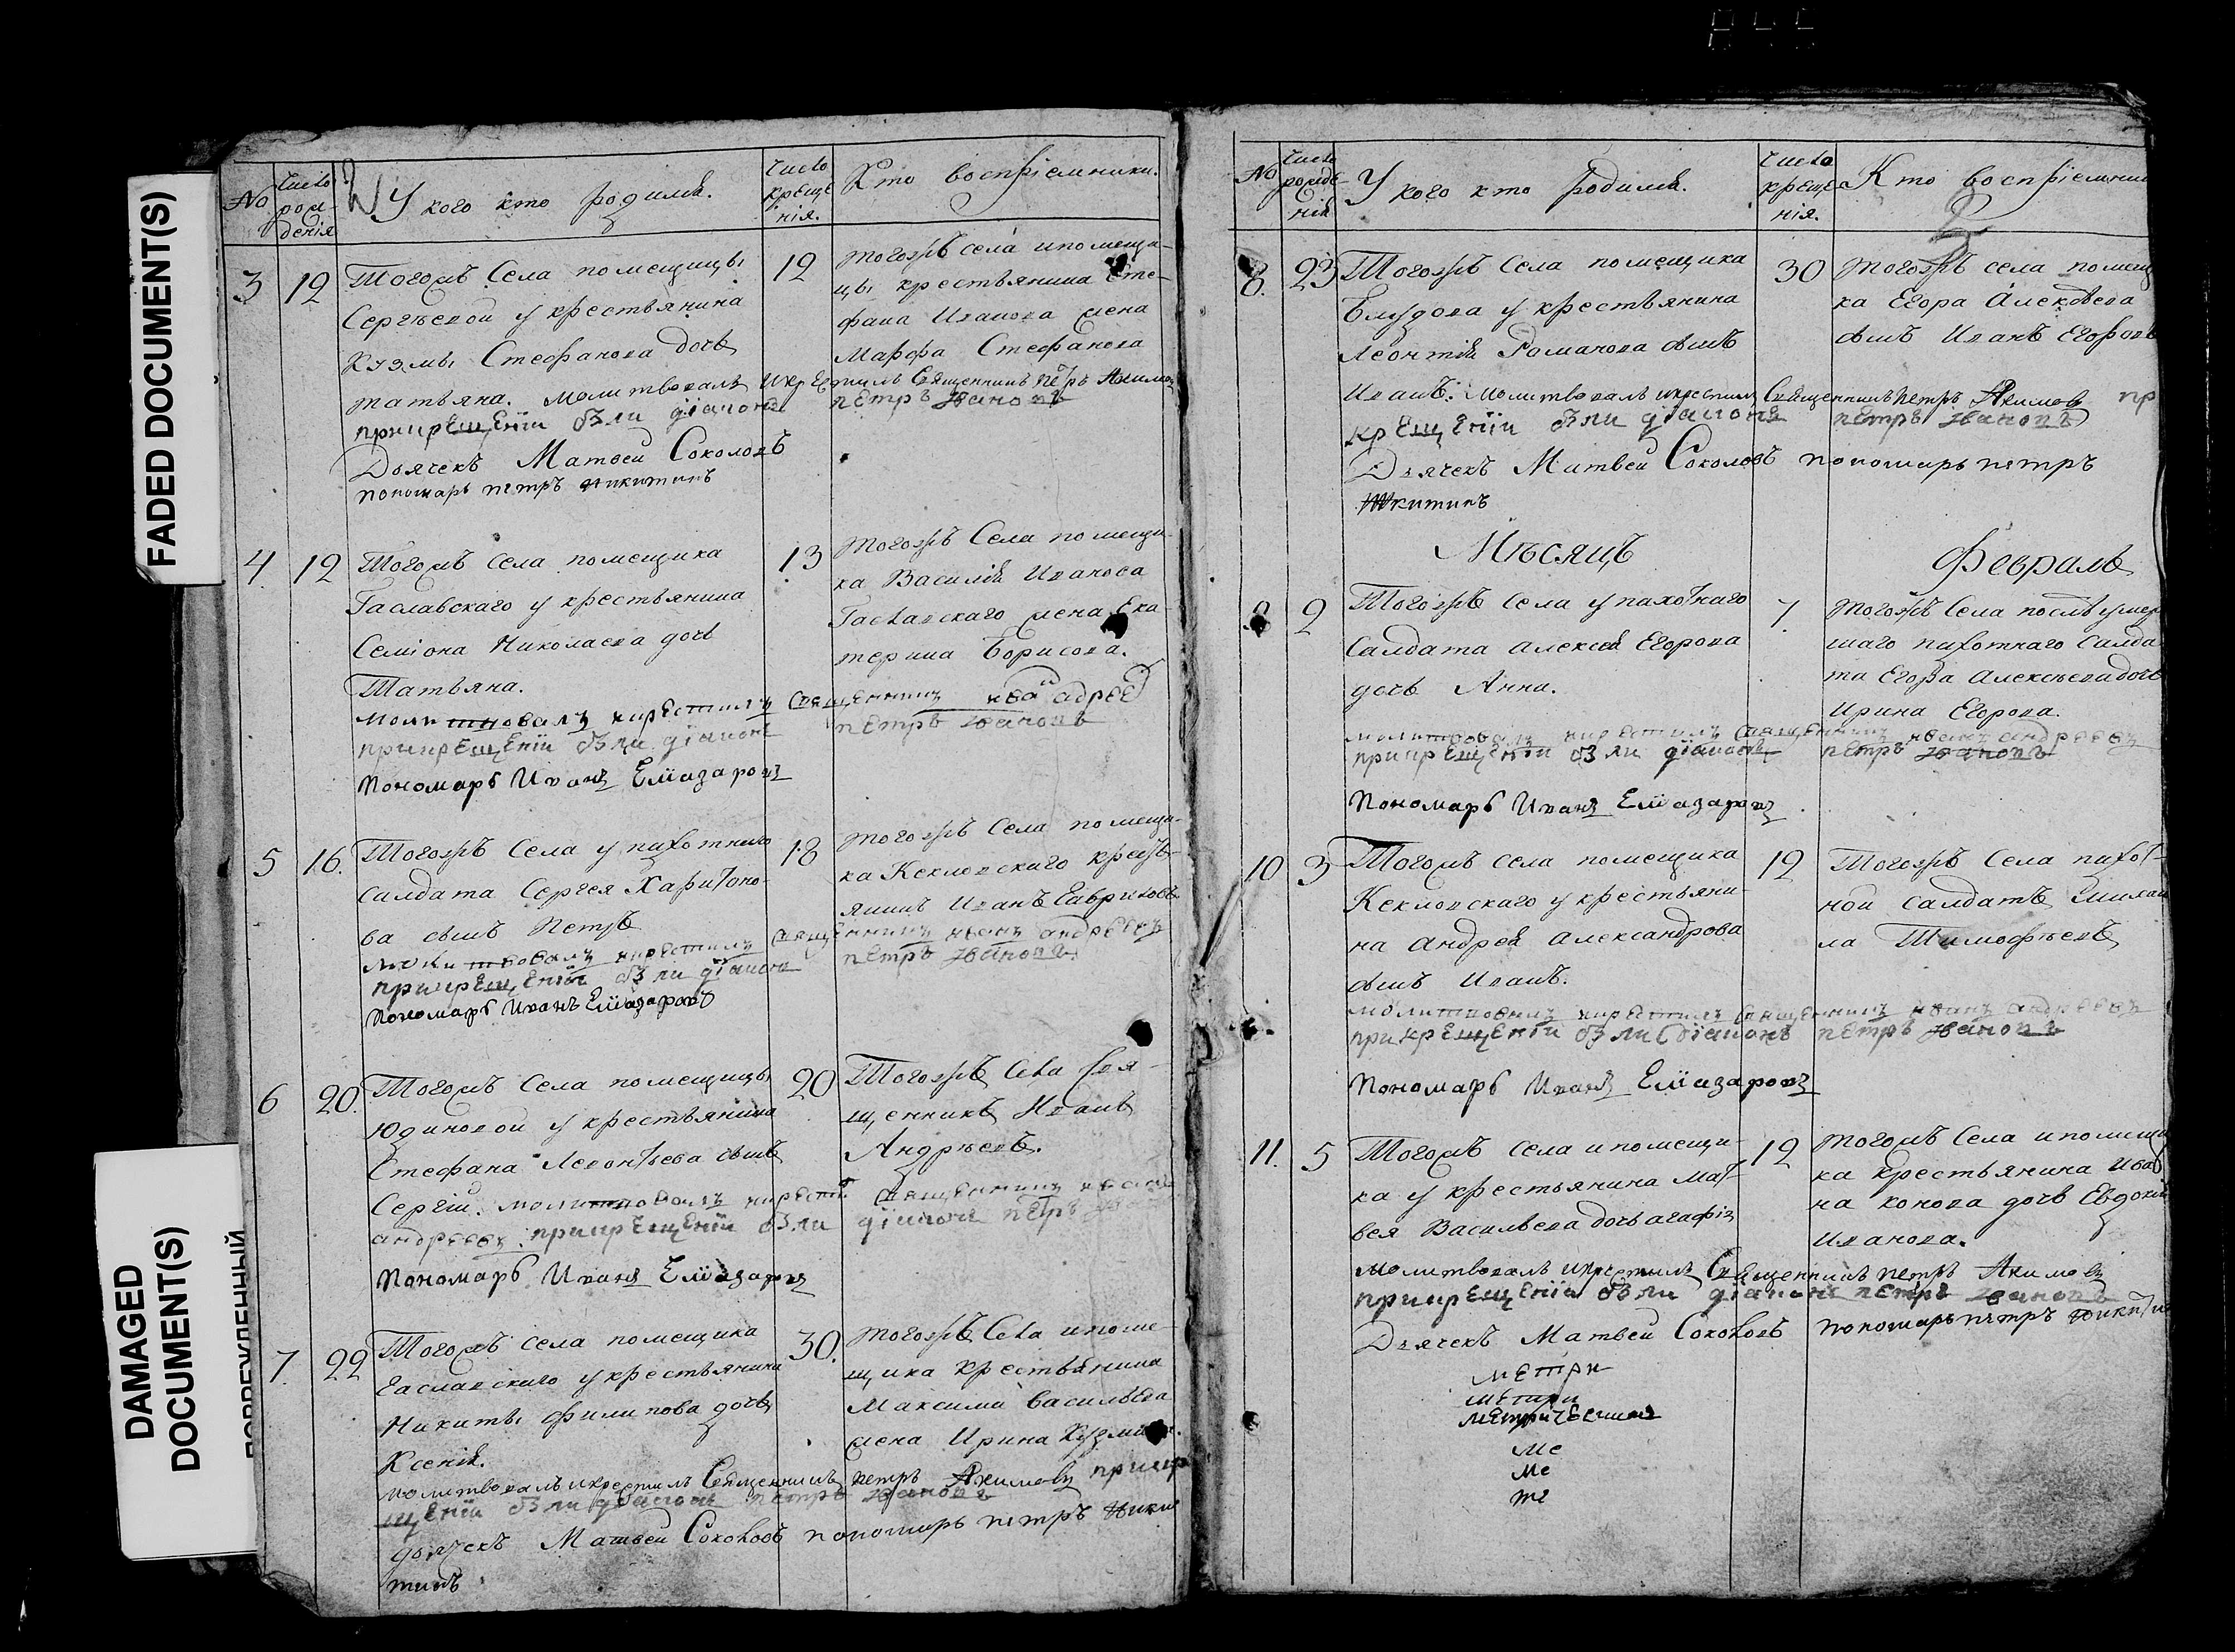 FADED DOCUMENT(S)
DAMAGED
DOCUMENT(S)
№
Число
рож-
денія
У кого кто родился.
Число
креще
нія.
Кто воспріемники.
3
12
Тогожъ Села помещицы
Сергѣевой у крестьянина
Кузмы Стефанова дочь
татьяна. молитвовалъ и крестилъ Священникъ петръ Акимов
прикрещеніи были діаконъ петръ ивановъ
Дьячекъ Матвей Соколовъ
пономарь петръ никитинъ
12
тогожъ села и помещи-
цы крестьянина Сте-
фана Иванова жена
Марфа Стефанова
4
12
Тогожъ Села помещика
Гаславскаго у крестьянина
Семіона Николаева дочь
Татьяна.
молитвовалъ икрестилъ Священникъ
прикрещеніи были діаконъ петръ ивановъ
Пономарь Иванъ Еліазаровъ
13
тогожъ Села помещи-
ка Василій Иванова
Гаславскаго жена Ека-
терина Борисова.
5
16.
Тогожъ Села у пахотнаго
салдата Сергея Харитоно-
ва сынъ Петръ
молитвовалъ икрестилъ Священникъ иванъ андреевъ
прикрещеніи были діаконъ петръ ивановъ
Пономарь Иванъ Еліазаровъ
18
тогожъ Села помещи-
ка Кекловскаго кресть-
янинъ Иванъ Гавриловъ
6
20.
Тогожъ Села помещицы
Юдиновой у крестьянина
Стефана Леонтьева сынъ
Сергій. молитвовалъ икрести Священникъ иванъ
андреевъ. прикрещеніи были діаконъ петръ
Пономарь Иванъ Еліазаровъ
20
Тогожъ Села Свя-
щенникъ Иванъ
Андрѣевъ.
7.
22
Тогожъ села помещика
Гаславскаго у крестьянина
Никиты филипова дочь
Ксенія.
молитвовалъ икрестилъ Священникъ петръ Акимовъ прикр
щеніи были діаконъ петръ ивановъ
дьячекъ Матвей Соколовъ пономарь петръ Ники
тинъ
30.
тогожъ Села и поме-
щика крестьянина
Максима васильева
жена Ирина Кузмина.
№
Число
рожде-
нія
У кого кто родился.
Число
креще
нія.
Кто воспріемник
8.
23
Тогожъ Села помещика
Блудова у крестьянина
Леонтій Романова сынъ
Иванъ. молитвовалъ икрестилъ Священникъ петръ Акимовъ пр
крещеніи были діаконъ петръ ивановъ
Дьячекъ Матвей Соколовъ пономарь петръ
Никитинъ
30
тогожъ села помещ
ка Егора Алексѣева
сынъ Иванъ Егоровъ
Мѣсяцъ Февраль
2
Тогожъ Села у пахотнаго
Салдата алексей Егорова
дочь Анна.
молитвовалъ икрестилъ Священникъ иванъ андреевъ
прикрещеніи были діаконъ петръ ивановъ
Пономарь Иванъ Еліазаровъ
7.
тогожъ Села послѣ умер
шаго пахотнаго Салда
та Егора Алексѣева дочь
Ирина Егорова.
10
3
Тогожъ села помещика
Кекловскаго у крестьяни-
на андрей александрова
сынъ Иванъ.
молитвовалъ икрестилъ Священникъ иванъ андреевъ
прикрещеніи были діаконъ петръ ивановъ
Пономарь Иванъ Еліазаровъ
12
Тогожъ Села пахот-
ной салдатъ
ла Тимофѣевъ
11.
5
Тогожъ Села и помещи-
ка у крестьянина мат-
вея Васильева дочь агафія
молитвовалъ икрестилъ Священникъ петръ Акимовъ
прикрещеніи были діаконъ петръ ивановъ
Дьячекъ Матвей Соколовъ пономарь петръ никити
12
тогожъ Села и помещи
ка крестьянина Ива
на конова дочь Евдокія
Иванова.
метри
метри
метрическия
ме
ме
ме